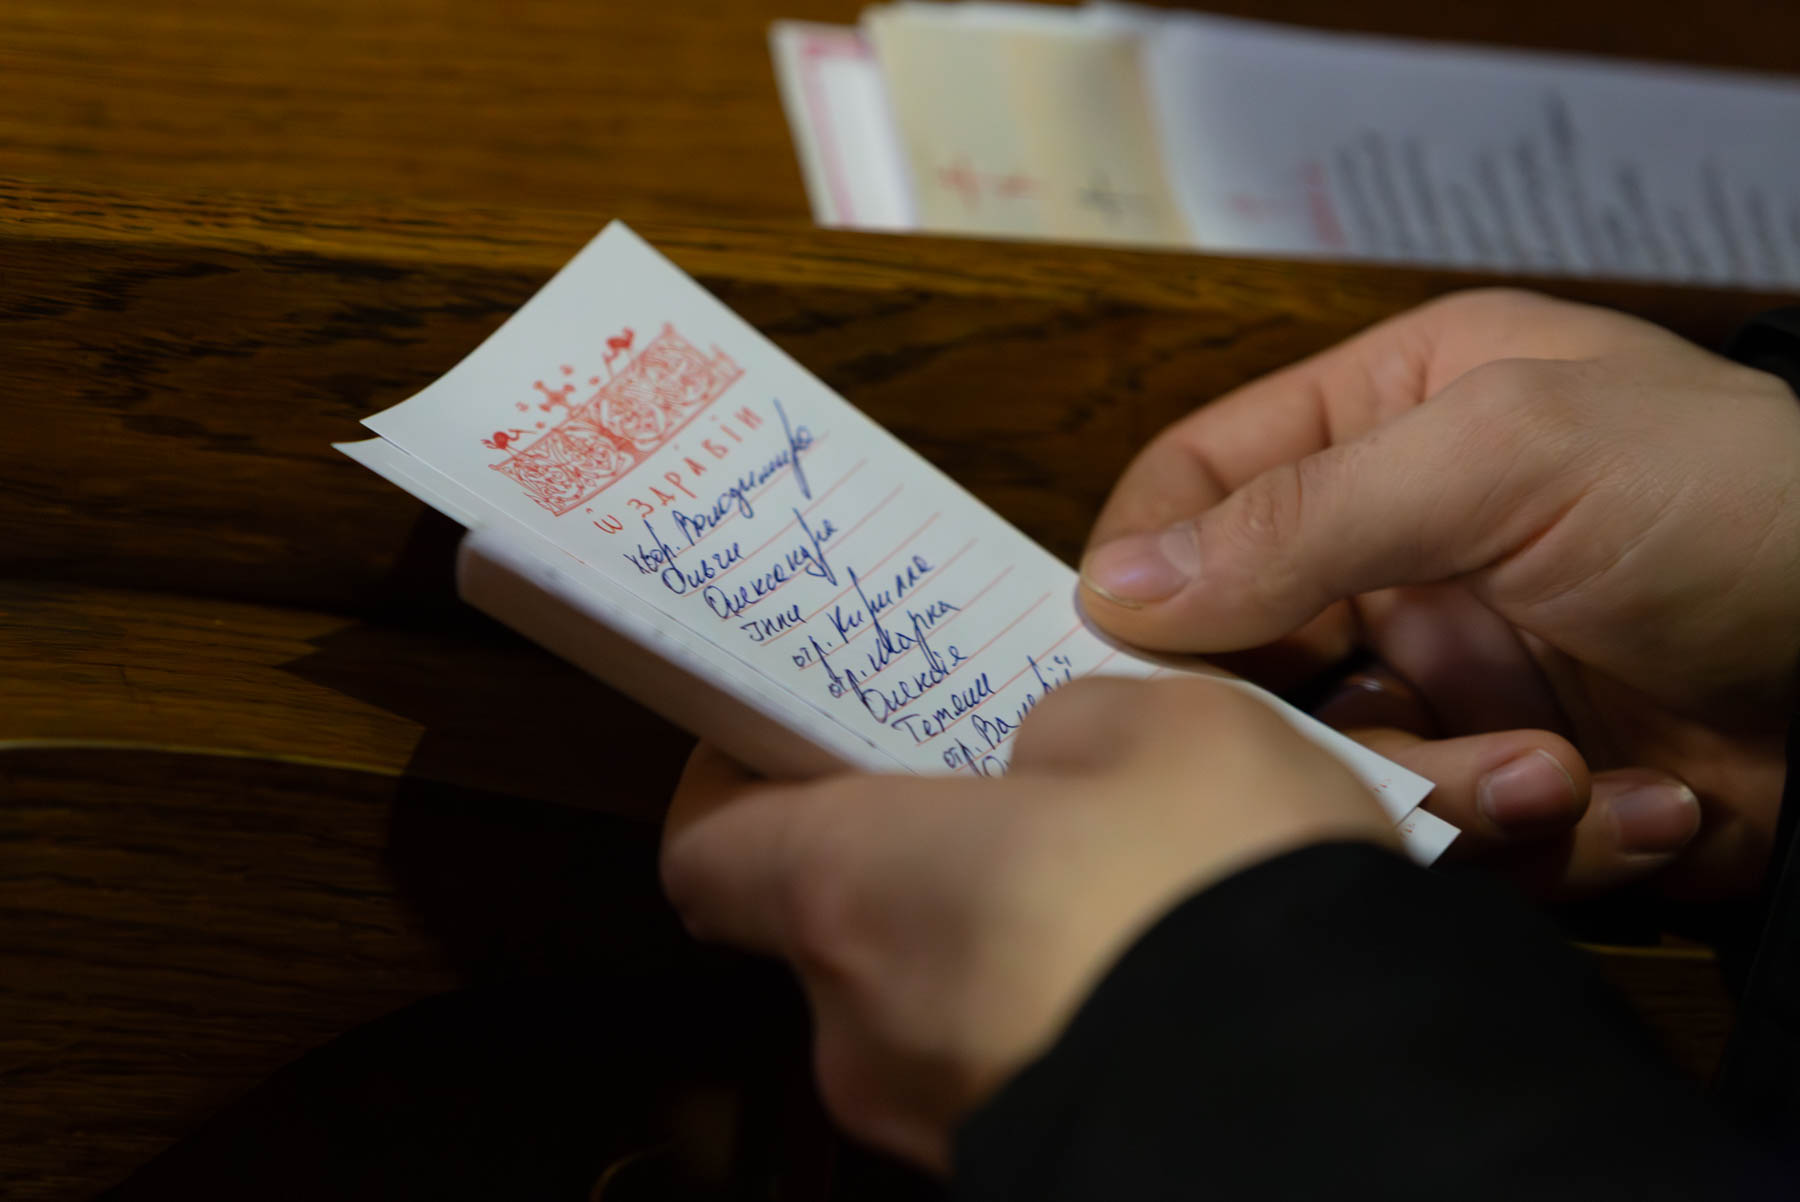 Ѡ ЗДРАВІИ
хвор. Володимира
Ольги
Олександра
Інни
отр. Кирилла
отр. Марка
Олексія
Тетяни
отр.